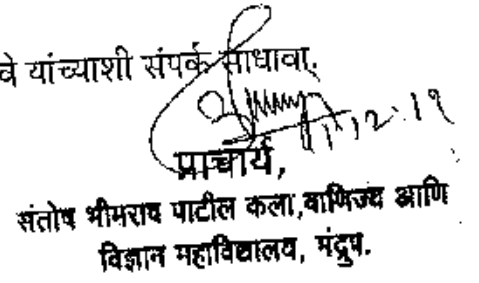 वे यांच्याशी संपर्क साधावा.
12.19
प्राचार्य,
संतोष भीमराव पाटील कला,वाणिज्य आणि
विज्ञान महाविद्यालय, मंद्रुप.